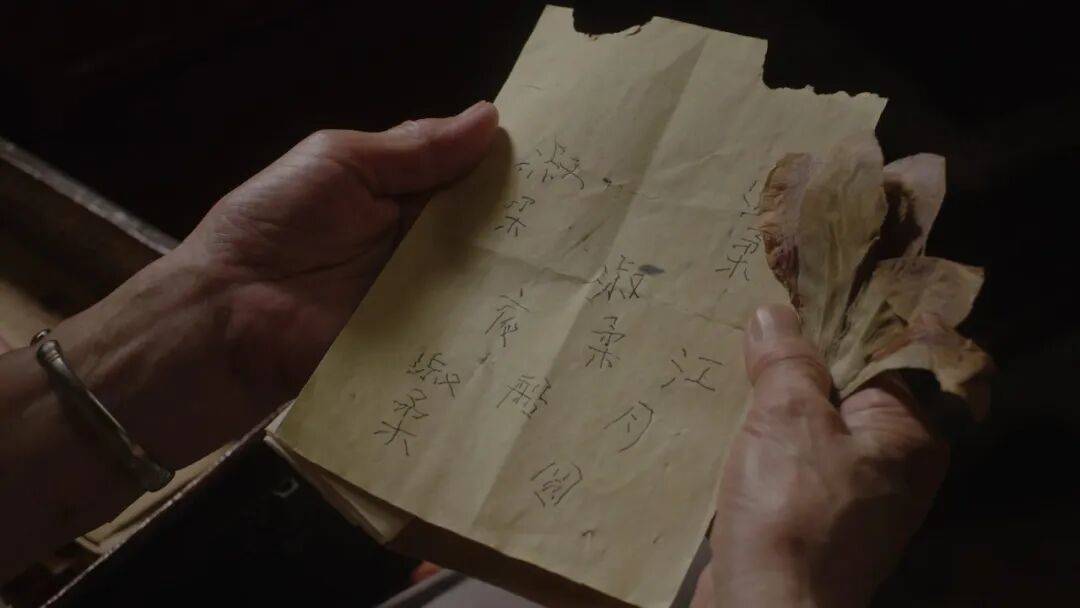 柔
江月圆
淑柔
夜船
淑柔
淑柔